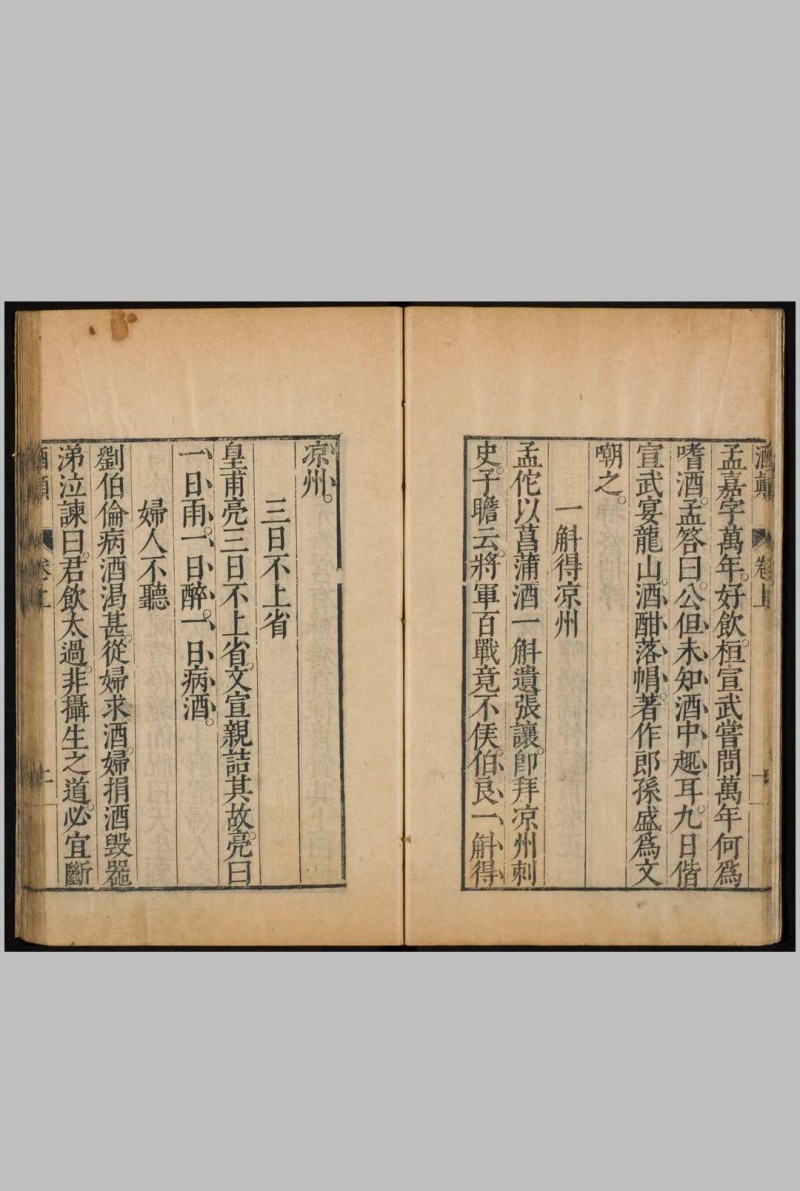 酒顛 卷上
孟嘉字萬年。好飲。桓宣武嘗問萬年何為
嗜酒。孟答曰。公但未知酒中趣耳。九日偕
宣武宴龍山。酒酣落帽。著作郎孫盛為文
嘲之。
一斛得凉州
孟佗以菖蒲酒一斛遺張讓。卽拜凉州刺
史。子瞻云。將軍百戰竟不侯。伯良一斛得
凉州。
三日不上省
皇甫亮三日不上省。文宣親詰其故。亮曰
一日雨。一日醉。一日病酒。
婦人不聽
劉伯倫病酒渴甚。從婦求酒。婦捐酒毀器
涕泣諫曰。君飲太過。非攝生之道。必宜斷
酒顛 卷上